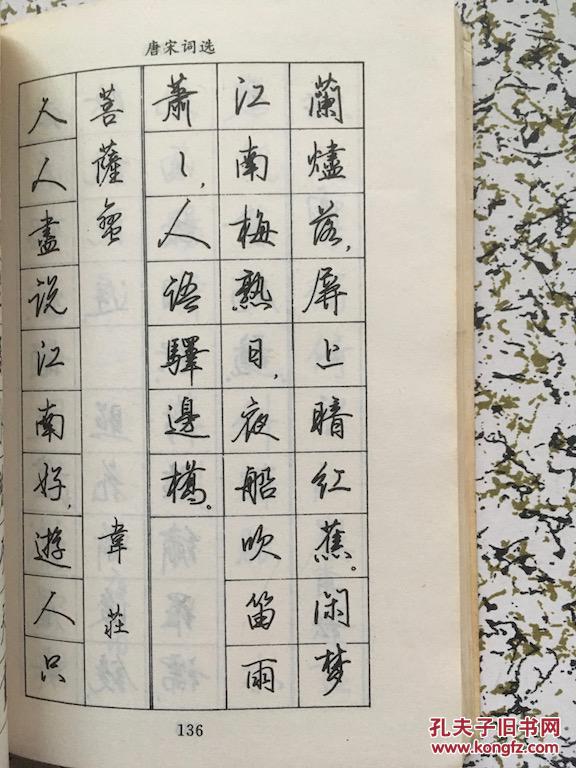 唐宋词选
蘭燼落,屏上暗红蕉。闲梦
江南梅熟日,夜船吹笛雨
蕭〻,人语驛邊橋。
菩薩蛮 韋莊
人人盡说江南好,遊人只
136
孔夫子旧书网
www.kongfz.com